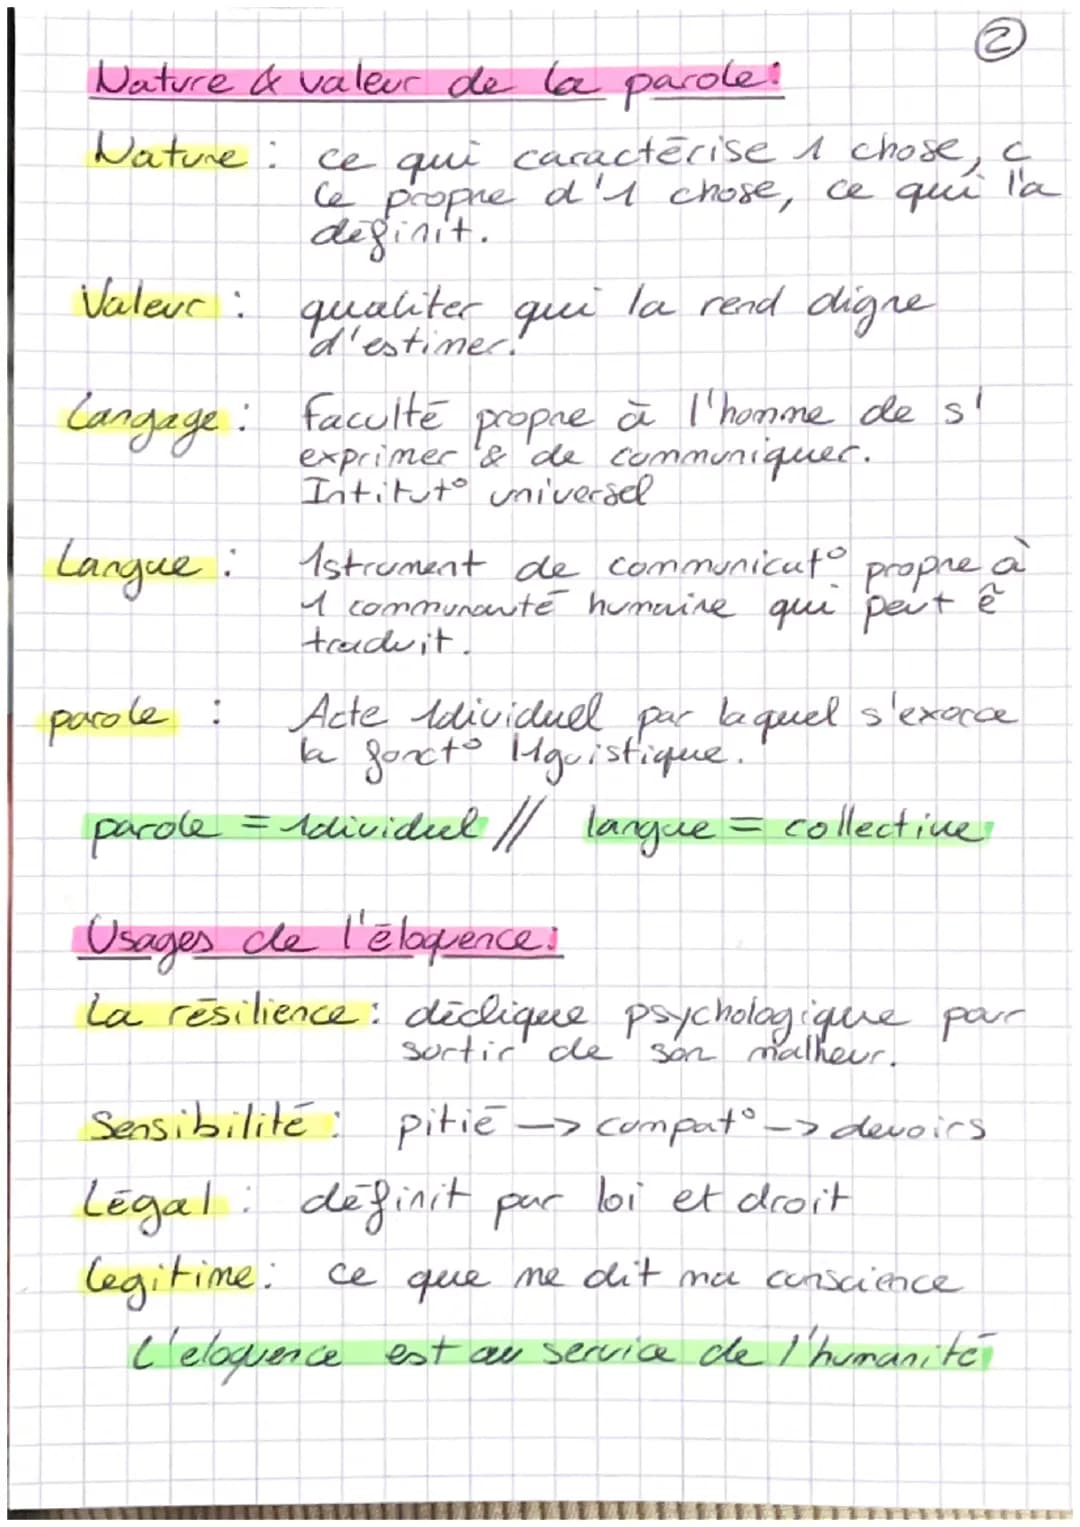 2
Nature & valeur de la parole:
Nature : ce qui caractérise 1 chose, c
le propre d'1 chose, ce qui l'a
définit.
Valeur : qualiter qui la rend digne
d'estimer.
Langage : Faculté propre à l'homme de s'
exprimer & de communiquer.
Intitut° universel
Langue : 1strument de communicat° propre à
1 communauté humaine qui peut ê
traduit.
parole : Acte 1dividuel par laquel s'exerce
la fonct° l1guistique.
parole = 1dividuel // langue = collective
Usages de l'éloquence:
La résilience : déclique psychologique pour
sortir de son malheur.
Sensibilité : pitié -> compat° -> devoirs
Légal : définit par loi et droit
Legitime : ce que me dit ma conscience
L'eloquence est au service de l'humanité